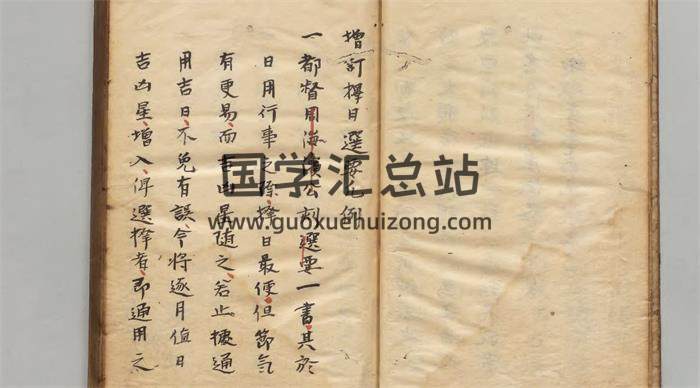 增訂擇日選要凡例
一都督周海濱公刻選要一書其於
日用行事之際擇日最便但節氣
有更易而吉凶星随之若止據通
用吉日不免有誤今將逐月值日
吉凶星增入俾選擇者即通用之
国学汇总站
www.guoxuehuizong.com